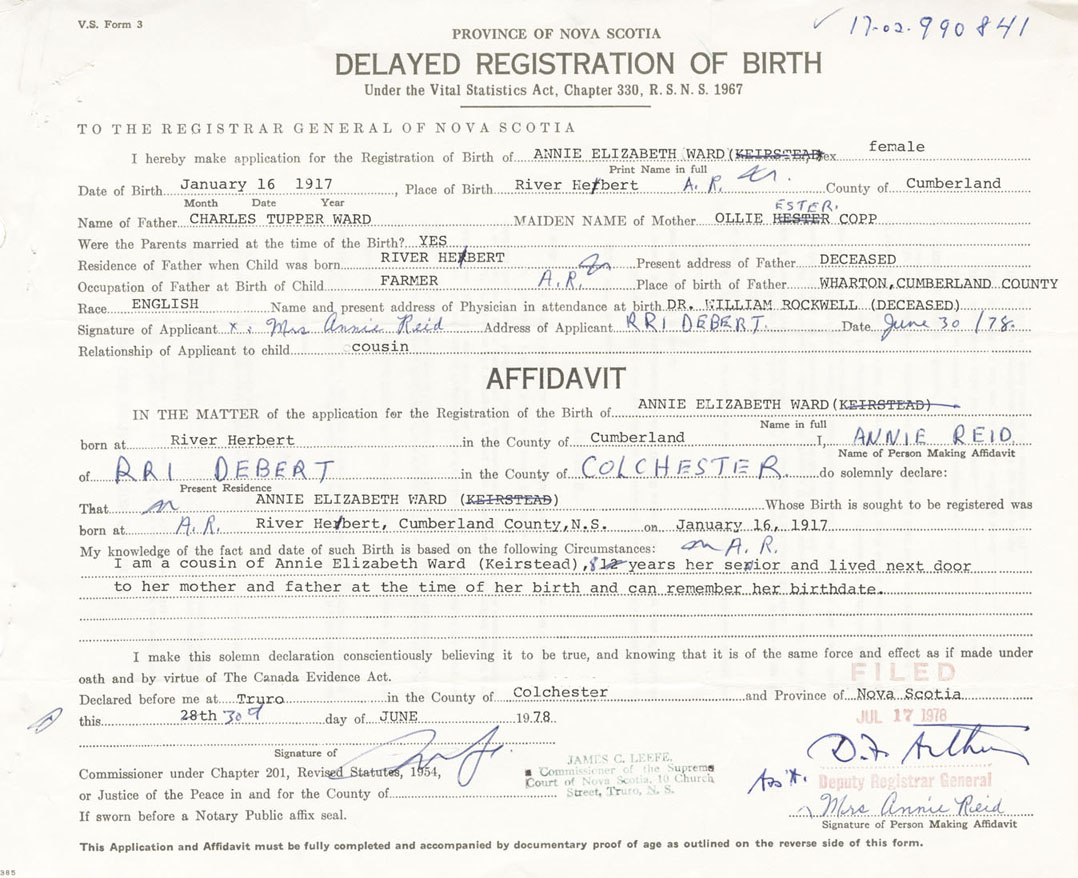 V.S. Form 3
17-02-990841
PROVINCE OF NOVA SCOTIA
DELAYED REGISTRATION OF BIRTH
Under the Vital Statistics Act, Chapter 330, R. S. N. S. 1967
TO THE REGISTRAR GENERAL OF NOVA SCOTIA
I hereby make application for the Registration of Birth of ANNIE ELIZABETH WARD (KEIRSTEAD) Sex female
Print Name in full
Date of Birth January 16 1917, Place of Birth River Herbert A.R. County of Cumberland
Month Date Year
ESTER.
Name of Father CHARLES TUPPER WARD MAIDEN NAME of Mother OLLIE HESTER COPP
Were the Parents married at the time of the Birth? YES
Residence of Father when Child was born RIVER HERBERT Present address of Father DECEASED
Occupation of Father at Birth of Child FARMER A.R. Place of birth of Father WHARTON, CUMBERLAND COUNTY
Race ENGLISH Name and present address of Physician in attendance at birth DR. WILLIAM ROCKWELL (DECEASED)
Signature of Applicant x. Mrs Annie Reid Address of Applicant RR1 DEBERT. Date June 30 /78.
Relationship of Applicant to child cousin
AFFIDAVIT
IN THE MATTER of the application for the Registration of the Birth of ANNIE ELIZABETH WARD (KEIRSTEAD)
Name in full
born at River Herbert in the County of Cumberland I, ANNIE REID
Name of Person Making Affidavit
of RR1 DEBERT in the County of COLCHESTER. do solemnly declare:
Present Residence
That ANNIE ELIZABETH WARD (KEIRSTEAD) Whose Birth is sought to be registered was
born at A.R. River Herbert, Cumberland County, N.S. on January 16, 1917
My knowledge of the fact and date of such Birth is based on the following Circumstances: A.R.
I am a cousin of Annie Elizabeth Ward (Keirstead), 8 12 years her senior and lived next door
to her mother and father at the time of her birth and can remember her birthdate.
I make this solemn declaration conscientiously believing it to be true, and knowing that it is of the same force and effect as if made under
oath and by virtue of The Canada Evidence Act.
FILED
Declared before me at Truro in the County of Colchester and Province of Nova Scotia
this 28th 30 day of JUNE 1978
JUL 17 1978
Signature of
Commissioner under Chapter 201, Revised Statutes, 1954,
or Justice of the Peace in and for the County of
If sworn before a Notary Public affix seal.
JAMES C. LEEFE,
Commissioner of the Supreme
Court of Nova Scotia, 10 Church
Street, Truro, N. S.
Deputy Registrar General
Mrs Annie Reid
Signature of Person Making Affidavit
This Application and Affidavit must be fully completed and accompanied by documentary proof of age as outlined on the reverse side of this form.
385